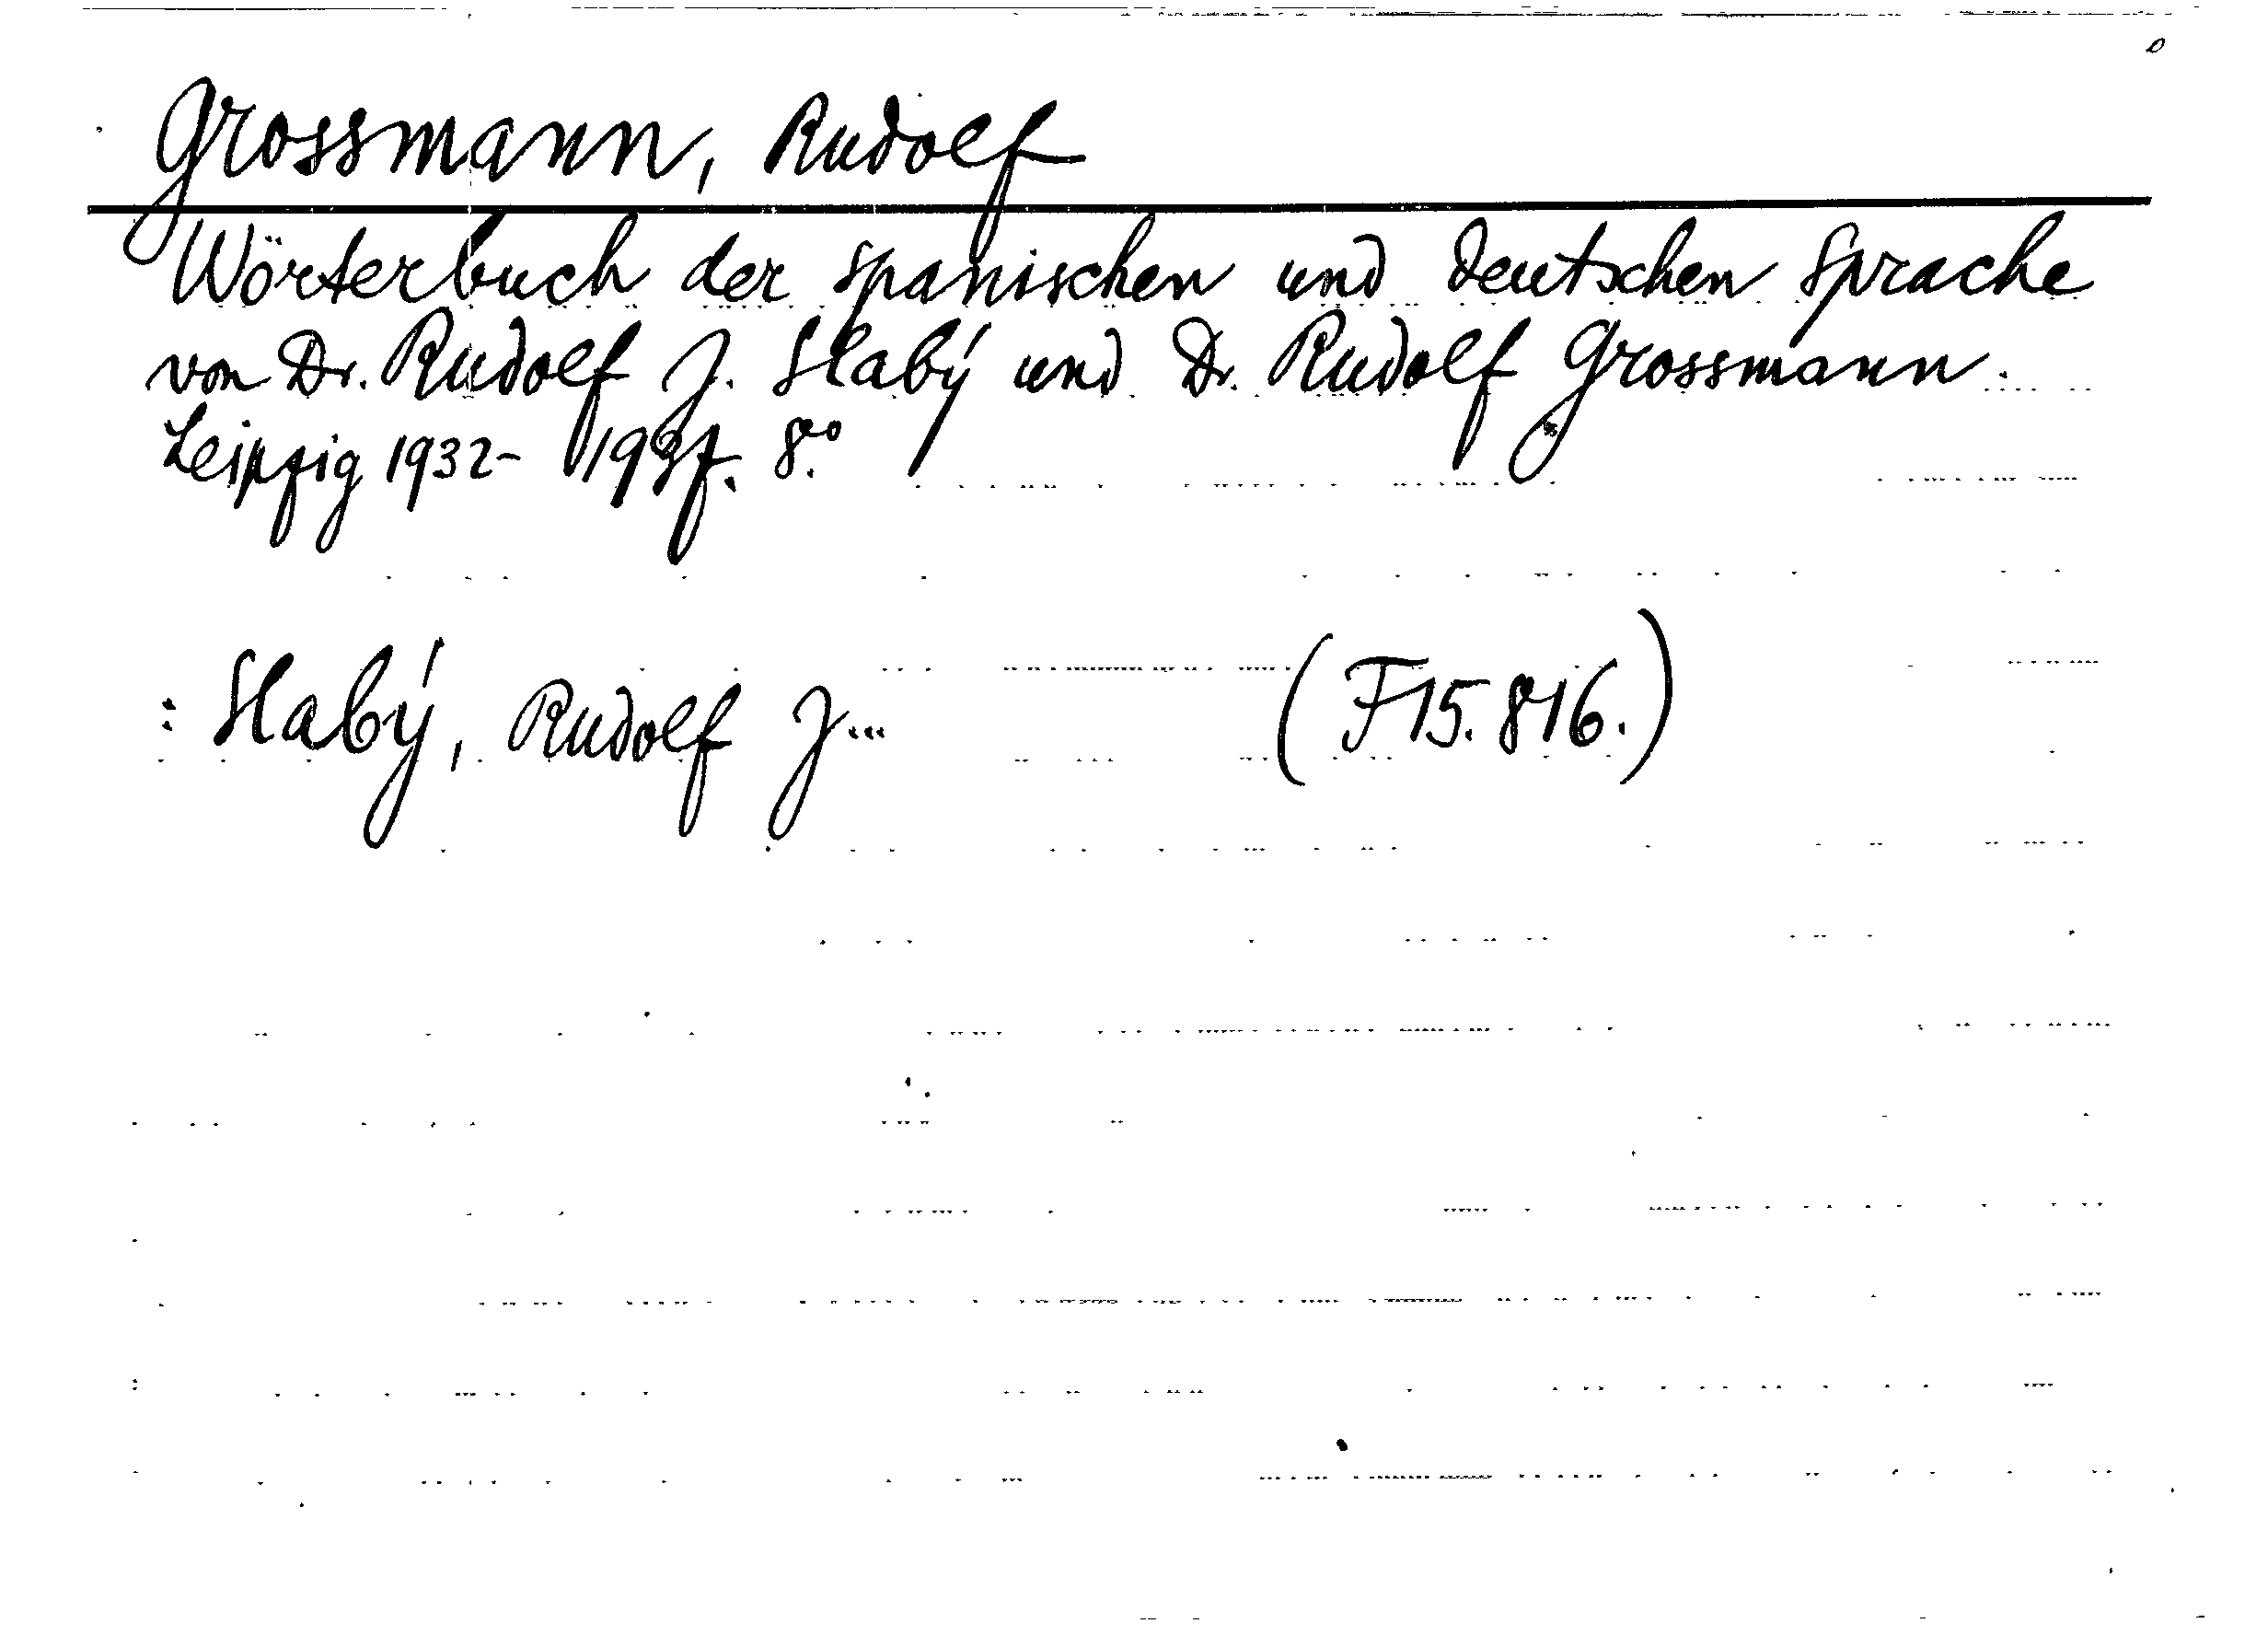 Grossmann, Rudolf
Wörterbuch der spanischen und deutschen Sprache
von Dr. Rudolf J. Slabý und Dr. Rudolf Grossmann.
Leipzig 1932-1937. 8vo
: Slabý, Rudolf J... (F15.816.)